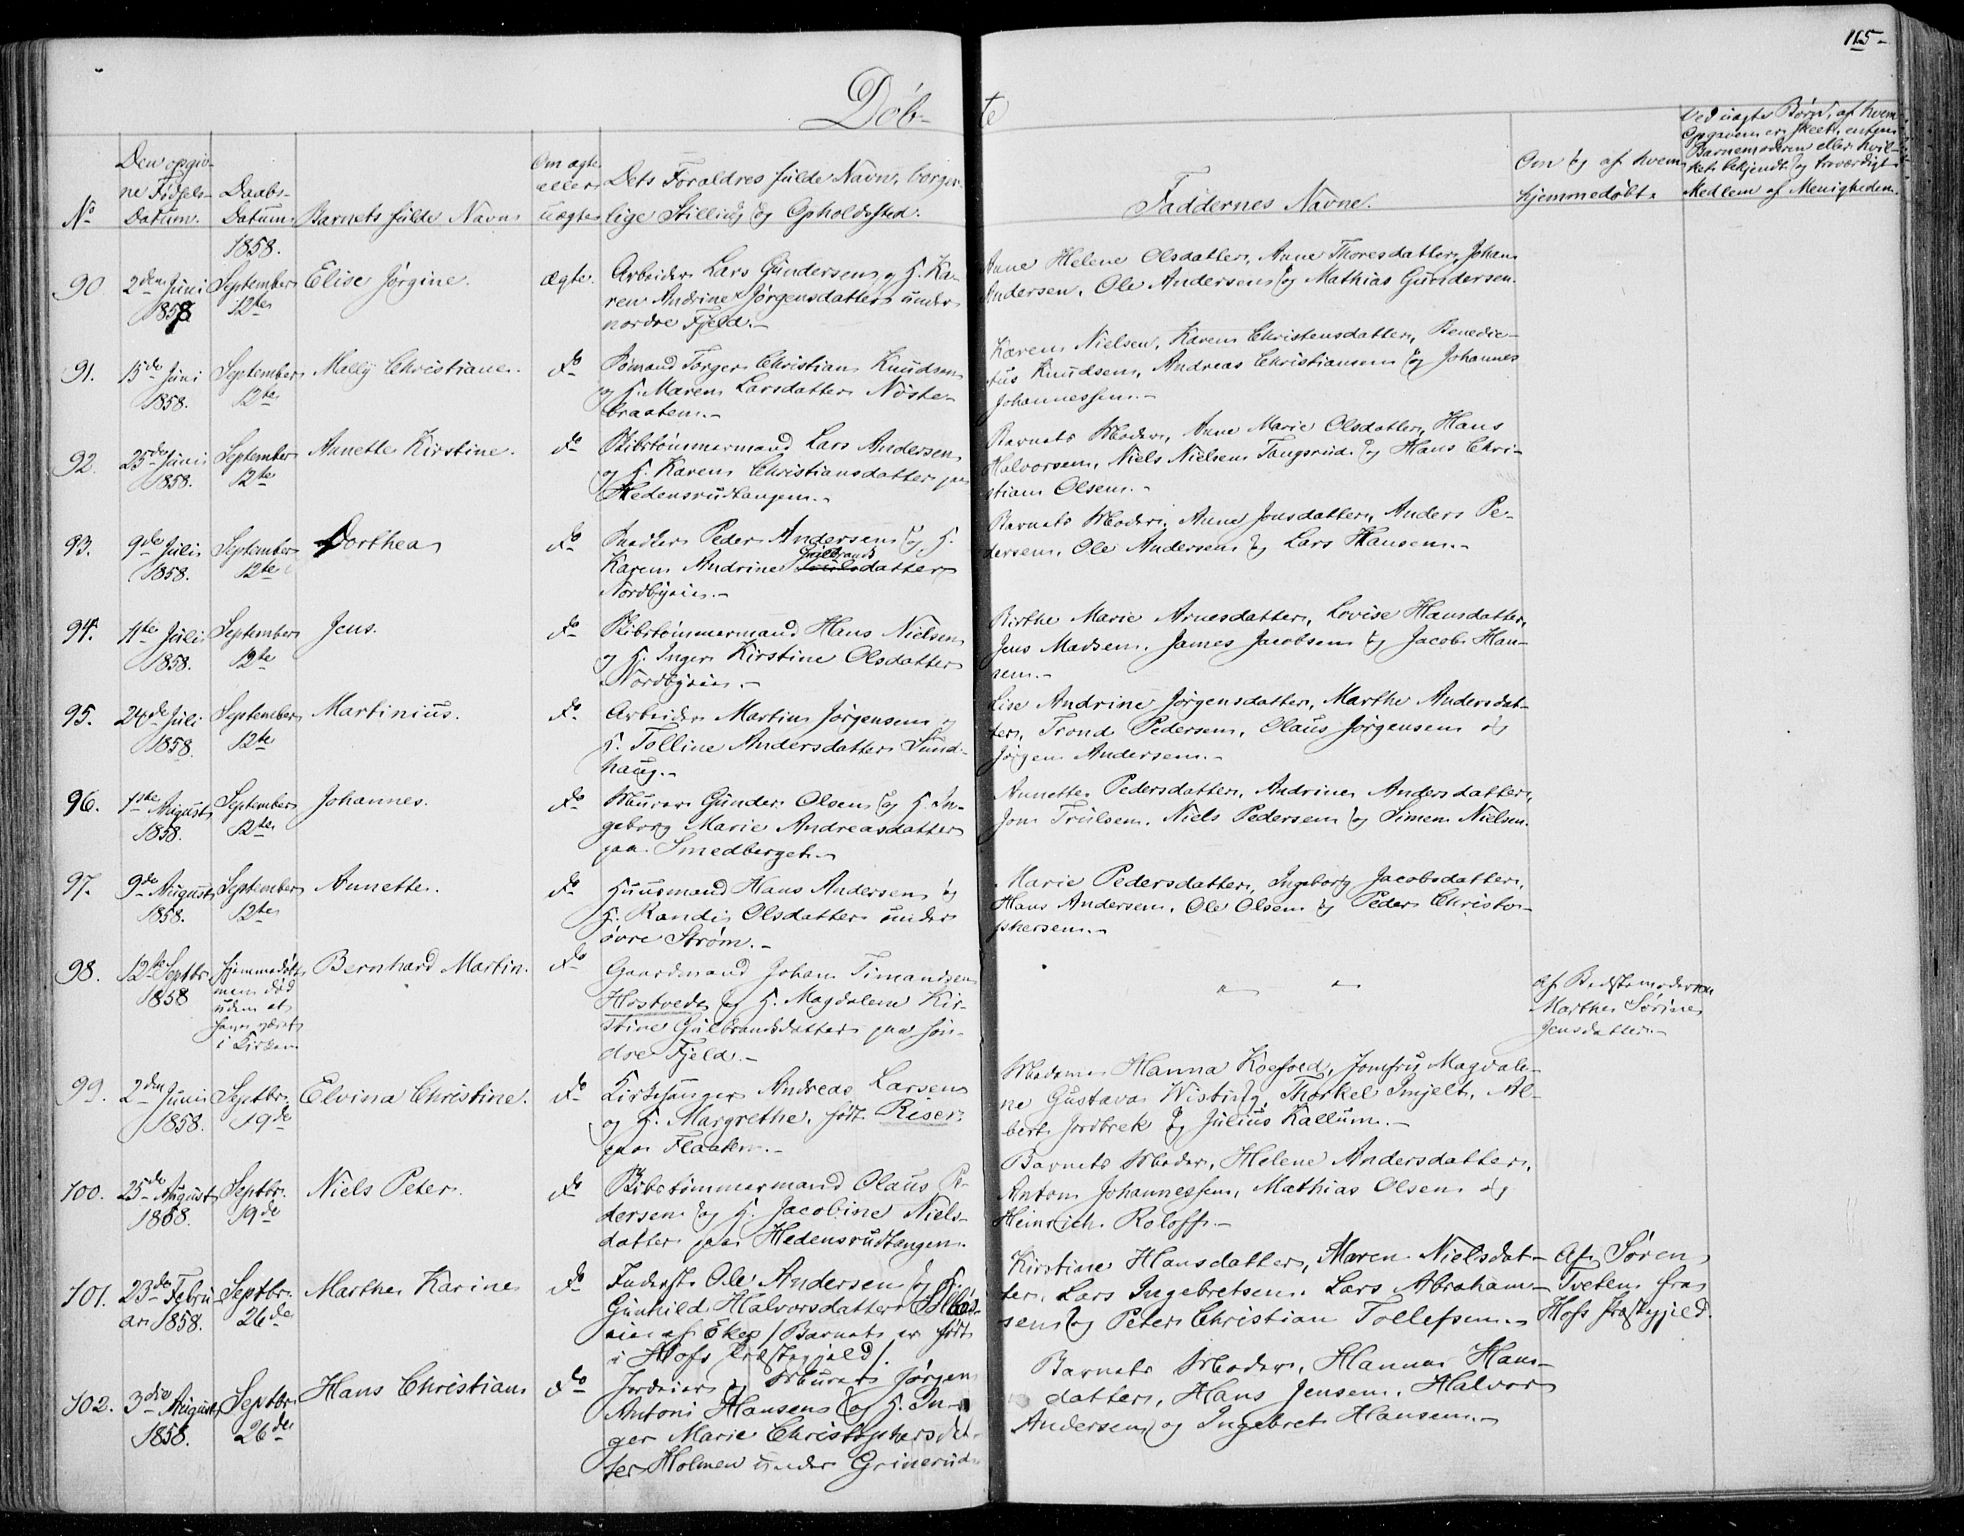 115
Døbte
No
Den opgiv-
ne Fødsels-
Datum.
Daabs-
Datum.
Barnets fulde Navn
Om ægte
eller
uægte
Dets Forældres fulde Navn, borger-
lige Stilling og Opholdssted.
Faddernes Navne.
Om og af hvem
hjemmedøbt.
Ved uægte Børn, af hvem
Opgaven er skeet, enten
Barnemoderen eller hvil-
ket bekjendt og troværdigt
Medlem af Menigheden.
1858.
90. 2den Juni 1858 September 12te Elise Jørgine. ægte.
Arbeider Lars Gundersen og H. Ka-
ren Andrine Jørgensdatter under
nordre Fjeld.-
Anne Helene Olsdatter, Anne Thoresdatter, Johan
Andersen, Ole Andersen og Mathias Gundersen.
91. 15de Juni 1858. September 12te Mally Christiane. do
Sømand Torger Christian Knudsen
og H. Maren Larsdatter Nøste-
braaten.-
Karen Nielsen, Karen Christensdatter, Benedic-
tus Knudsen, Andreas Christiansen og Johannes
Johannessen.-
92. 25de Juni 1858. September 12te Annette Kirstine. do
Skibstømmermand Lars Andersen
og H. Karen Christiansdatter paa
Hedensrudtangen.-
Barnets Moder, Anne Marie Olsdatter, Hans
Halvorsen, Niels Nielsen Tangsrud og Hans Chri-
stian Olsen.-
93. 9de Juli 1858. September 12te Dorthea do
Snedker Peder Andersen og H.
Karen Andrine Gulbrandsdatter
Nordbyeie.-
Barnets Moder, Anne Jonsdatter, Anders Pe-
dersen, Ole Andersen og Lars Hansen.-
94. 11te Juli 1858. September 12te Jens. do
Skibstømmermand Hans Nielsen
og H. Inger Kirstine Olsdatter
Nordbyeie.-
Birthe Marie Arnesdatter, Lovise Hansdatter,
Jens Madsen, James Jacobsen og Jacob Han-
sen.-
95. 24de Juli 1858. September 12te Martinius. do
Arbeider Martin Jørgensen og
H. Tolline Andersdatter Sund-
haug.-
Lise Andrine Jørgensdatter, Marthe Andersdat-
ter, Trond Pedersen, Olaus Jørgensen og
Jørgen Andersen.-
96. 1ste August 1858. September 12te Johannes. do
Murer Gunder Olsen og H. In-
geborg Marie Andreasdatter
paa Smedberget.-
Annette Pedersdatter, Andrine Andersdatter,
Jon Trulsen, Niels Pedersen og Simen Nielsen.
97. 9de August 1858. September 12te Annette. do
Huusmand Hans Andersen og
H. Randi Olsdatter under
øvre Strøm.-
Marie Pedersdatter, Ingeborg Jacobsdatter,
Hans Andersen, Ole Olsen og Peder Christo-
phersen.-
98. 12te Septbr. 1858 Hjemmedøbt
men død
uden at
have været
i Kirken
Bernhard Martin. do
Gaardmand Johan Timandsen
Hostvedt og H. Magdalene Kir-
stine Gulbrandsdatter paa søn-
dre Fjeld.-
" "
af Bedstemoderen
Marthe Sørine
Jensdatter.-
99. 2den Juni 1858. Septbr. 19de Elvina Christine. do
Kirkesanger Andreas Larsen
og H. Margrethe, født Riser
paa Flaaten.-
Madame Hanna Koefoed, Jomfru Magdale-
ne Gustava Wisbeg, Thorkel Imjelt, Al-
bert Jordbrek og Julius Kallum.-
100. 25de August 1858. Septbr. 19de Niels Peter. do
Skibstømmermand Olaus Pe-
dersen og H. Jacobine Niels-
datter paa Hedensrudtangen.
Barnets Moder, Helene Andersdatter,
Anton Johannessen, Mathias Olsen og
Heinrich Roloff.-
101. 23de Febru
ar 1858. Septbr. 26de Marthe Karine do
Inderst Ole Andersen og H.
Gunhild Halvorsdatter
eie af Eker (Barnet er født
i Hofs Præstegjeld).
Kirstine Hansdatter, Maren Nielsdat-
ter, Lars Ingebretsen, Lars Abraham-
sen og Peter Christian Tollefsen.-
Af Søren
Tveten fra
Hofs Præstegjeld.
102. 3die August 1858. Septbr. 26de Hans Christian do
Jordeier og Murer Jørgen
Antoni Hansen og H. In-
ger Marie Christophersdat-
ter Holmen under Grinerud
Barnets Moder, Hanna Hans-
datter, Hans Jensen, Halvor
Andersen og Ingebret Hansen.-